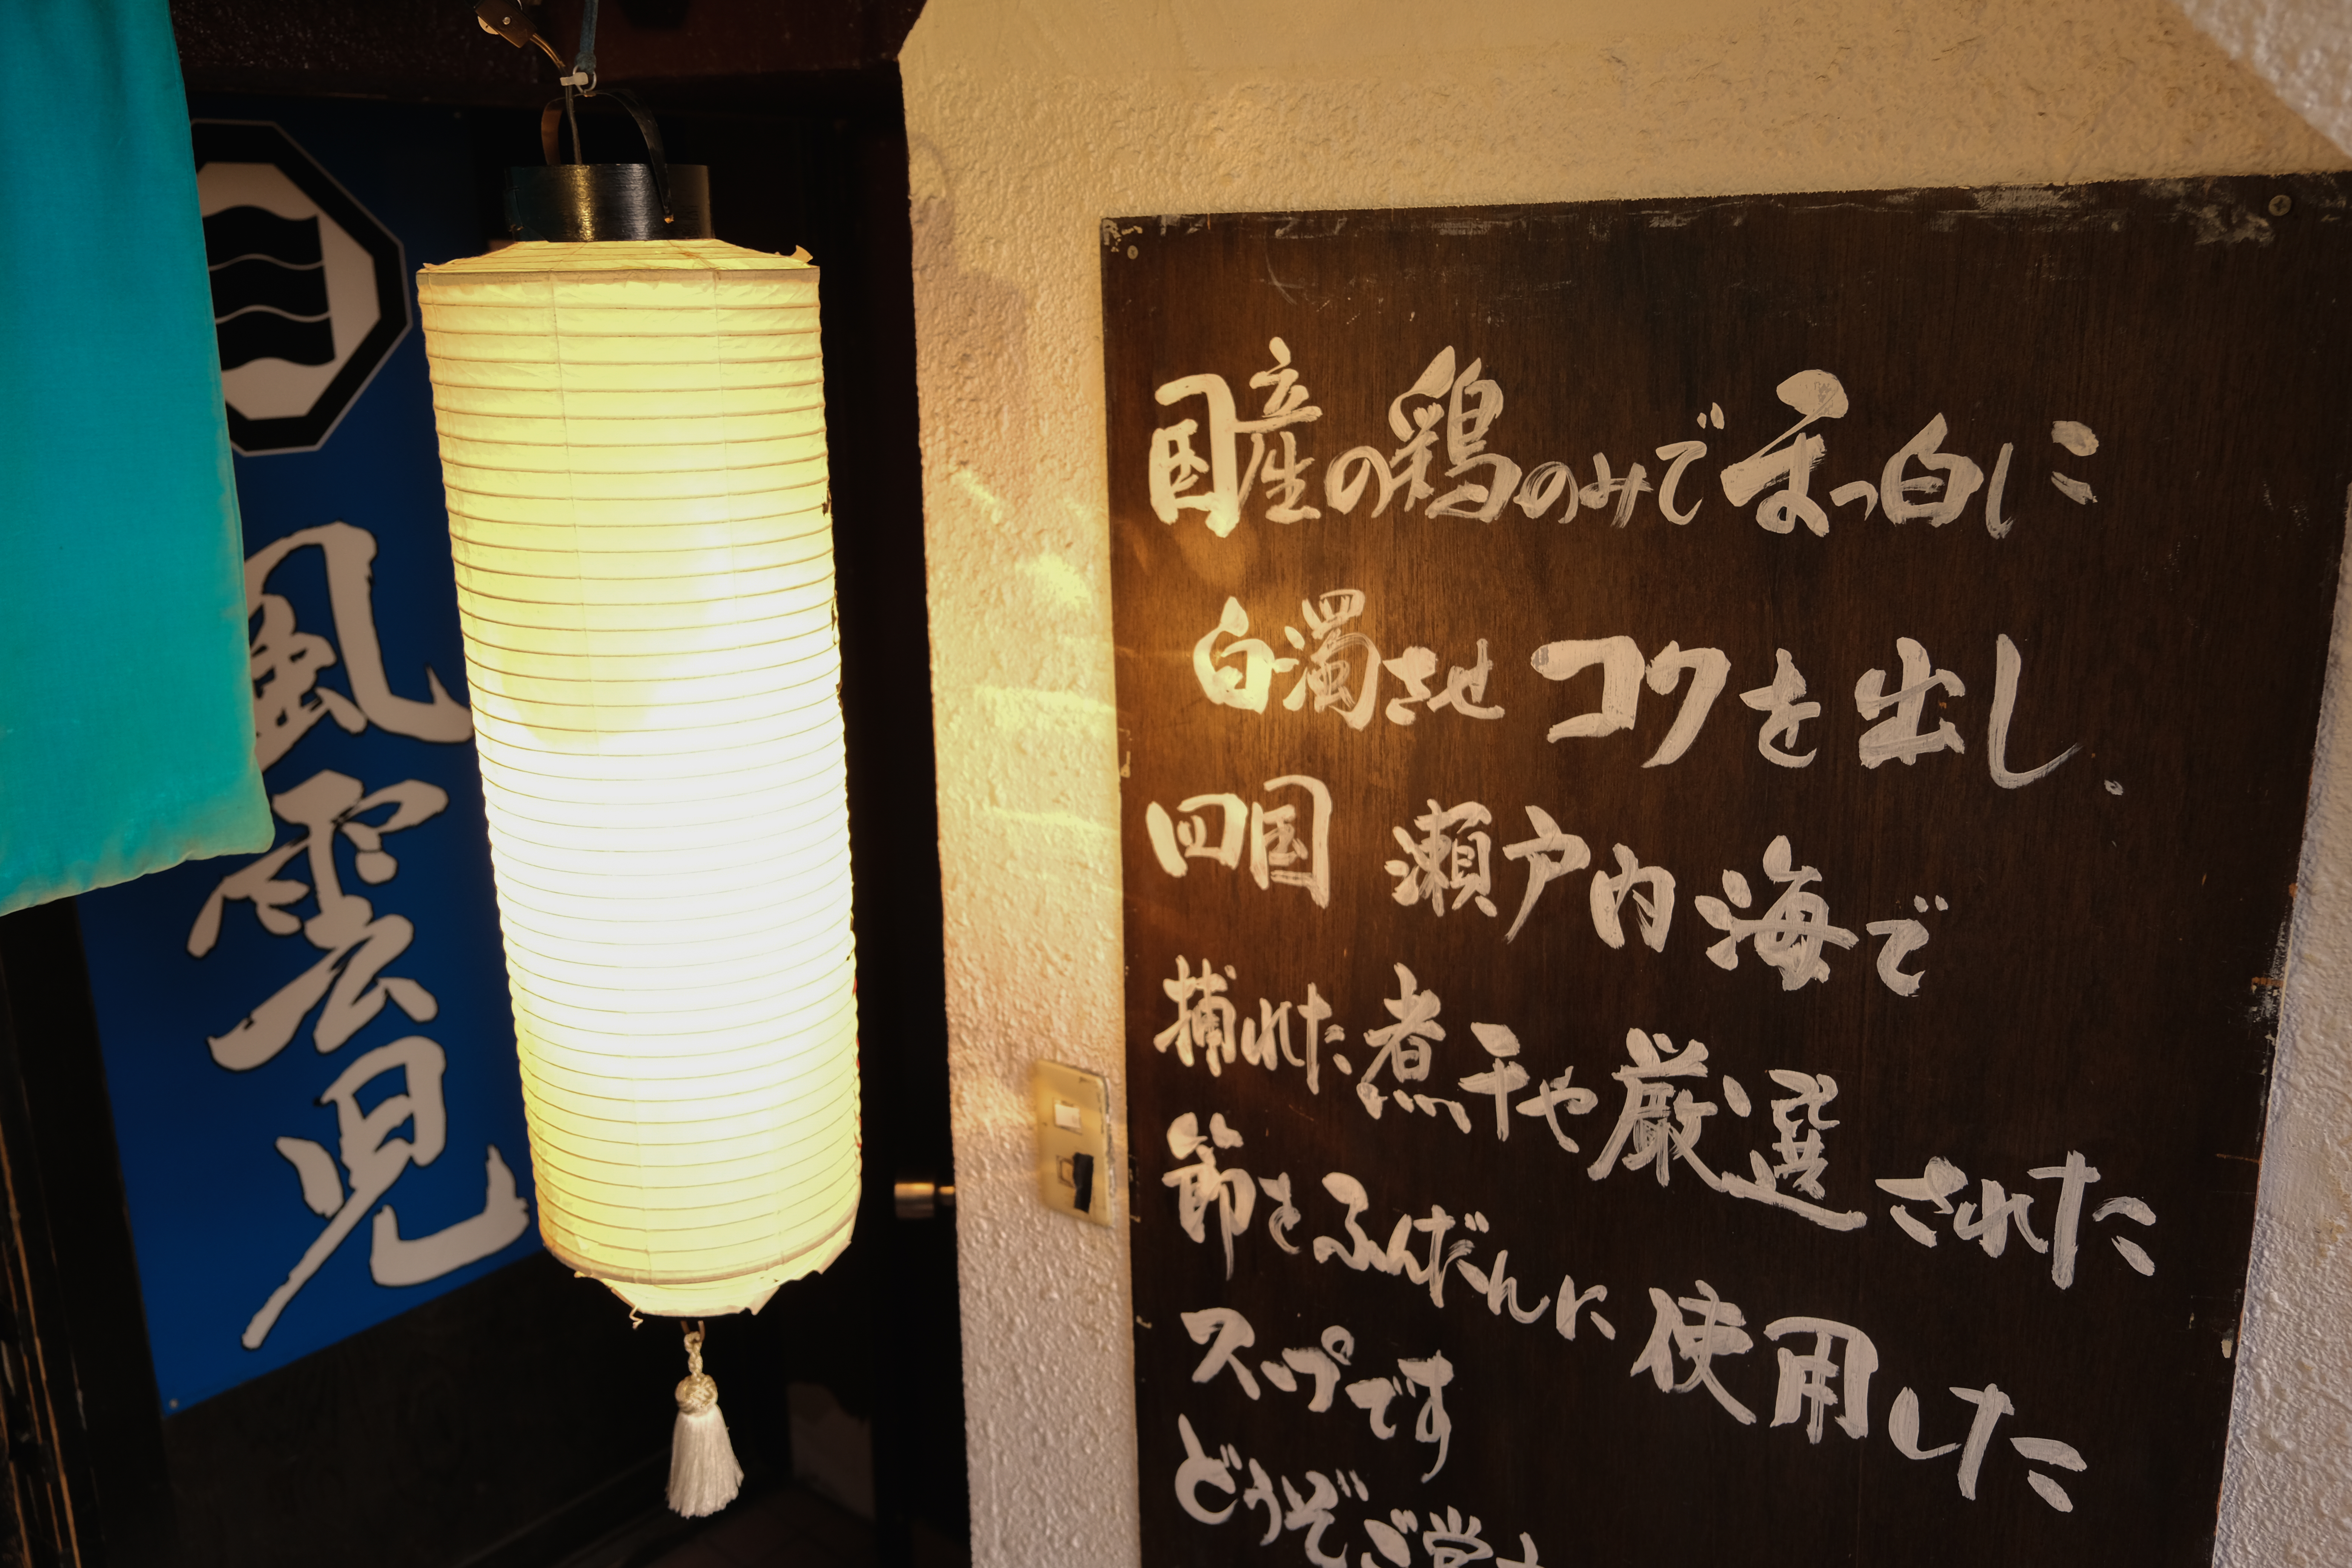 風雲児
国産の鶏のみでまっ白に
白濁させコクを出し、
四国 瀬戸内海で
捕れた煮干や厳選された
節をふんだんに使用した
スープです
どうぞご賞